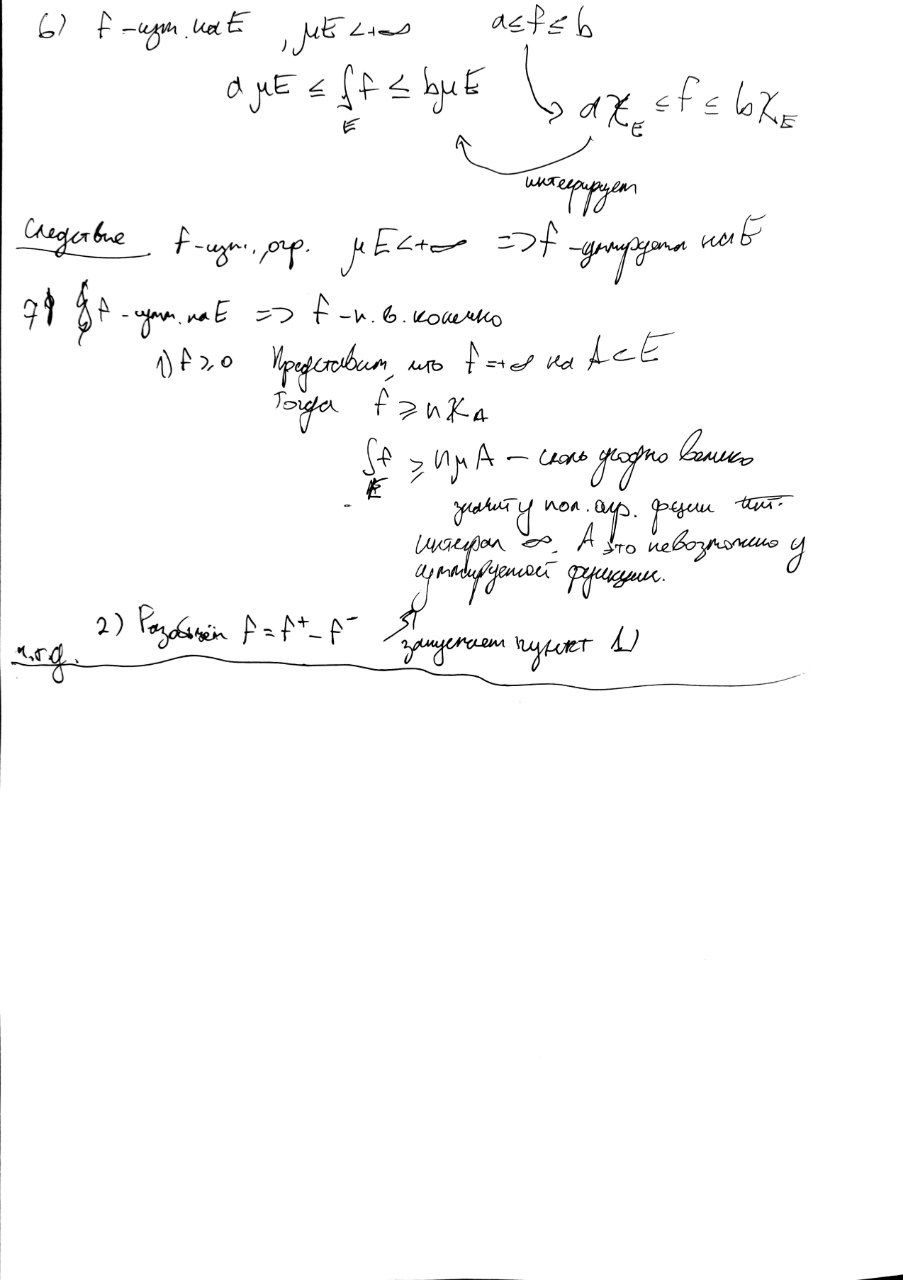 6) f - изм. на E , μE < +∞ a ≤ f ≤ b
a μE ≤ ∫_E f ≤ bμE
a χ_E ≤ f ≤ b χ_E
интегрируем
Следствие f - изм., огр. μE < +∞ => f - суммируема на E
7) f - сумм. на E => f - п. в. конечно
1) f ≥ 0 Представим, что f = +∞ на A ⊂ E
Тогда f ≥ n χ_A
∫_E f ≥ nμA - сколь угодно велико
значит у функции
интеграл ∞. А это невозможно у
суммируемой функции.
2) Разобьём f = f⁺ - f⁻
запускаем пункт 1)
ч.т.д.